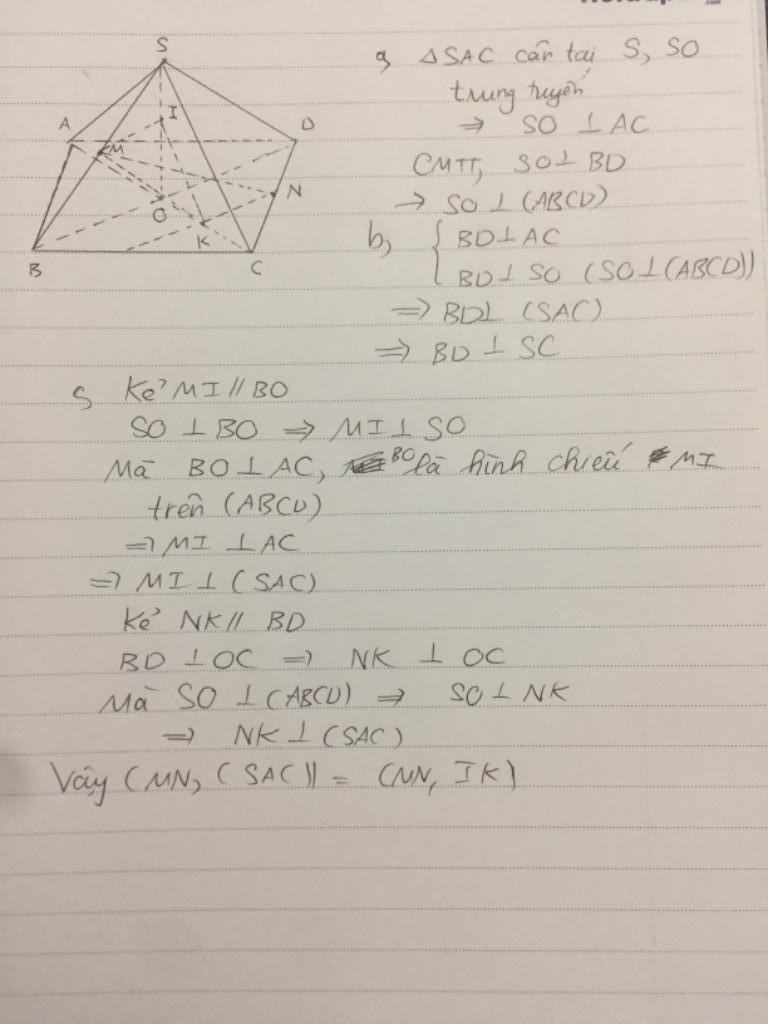 S
A
I
D
M
O
N
K
B
C
a, △SAC cân tại S, SO
trung tuyến
⇒ SO ⊥ AC
CMTT, SO ⊥ BD
→ SO ⊥ (ABCD)
b, { BD ⊥ AC
BD ⊥ SO (SO ⊥ (ABCD))
⇒ BD ⊥ (SAC)
⇒ BD ⊥ SC
Kẻ MI // BO
SO ⊥ BO ⇒ MI ⊥ SO
Mà BO ⊥ AC, BO là hình chiếu MI
trên (ABCD)
⇒ MI ⊥ AC
⇒ MI ⊥ (SAC)
Kẻ NK // BD
BD ⊥ OC ⇒ NK ⊥ OC
Mà SO ⊥ (ABCD) ⇒ SO ⊥ NK
⇒ NK ⊥ (SAC)
Vậy (MN, (SAC)) = (MN, IK)